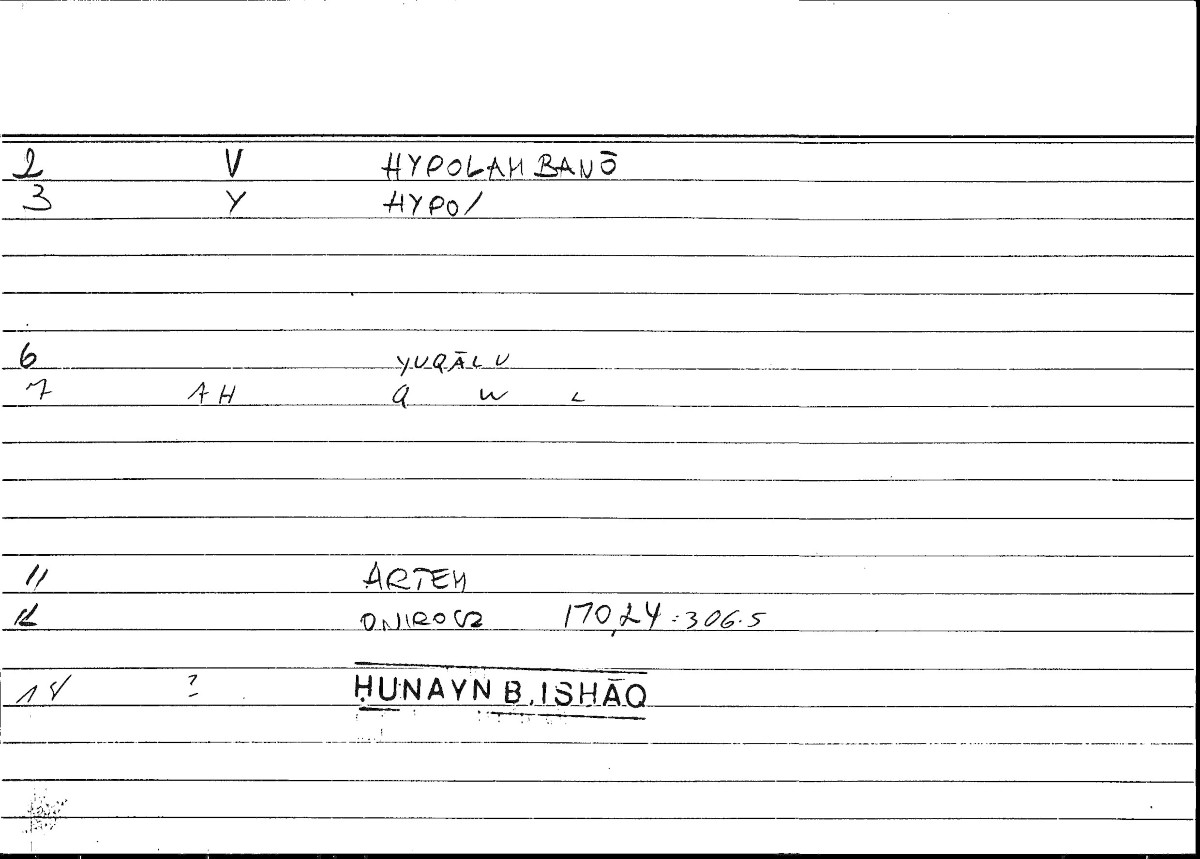 2 V HYPOLAMBANŌ
3 Y HYPO/
6 YUQĀLU
7 AH Q W L
11 ARTEM
12 ONIROCR 170,24 : 306.5
14 ? ḤUNAYN B. ISHĀQ